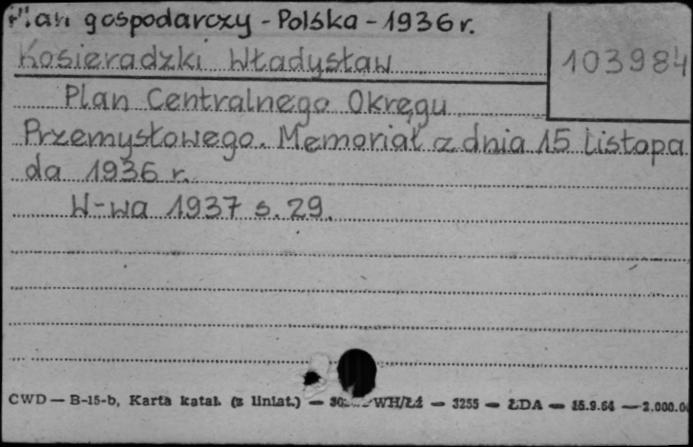 Plan gospodarczy - Polska - 1936 r.
Kosieradzki Władysław
103984
Plan Centralnego Okręgu
Przemysłowego. Memoriał z dnia 15 listopa
da 1936 r.
W-wa 1937 s. 29.
CWD — B-15-b, Karta katal. (z liniat.) — WH/Łż — 3255 — ŁDA — 15.9.64 — 2.000.0